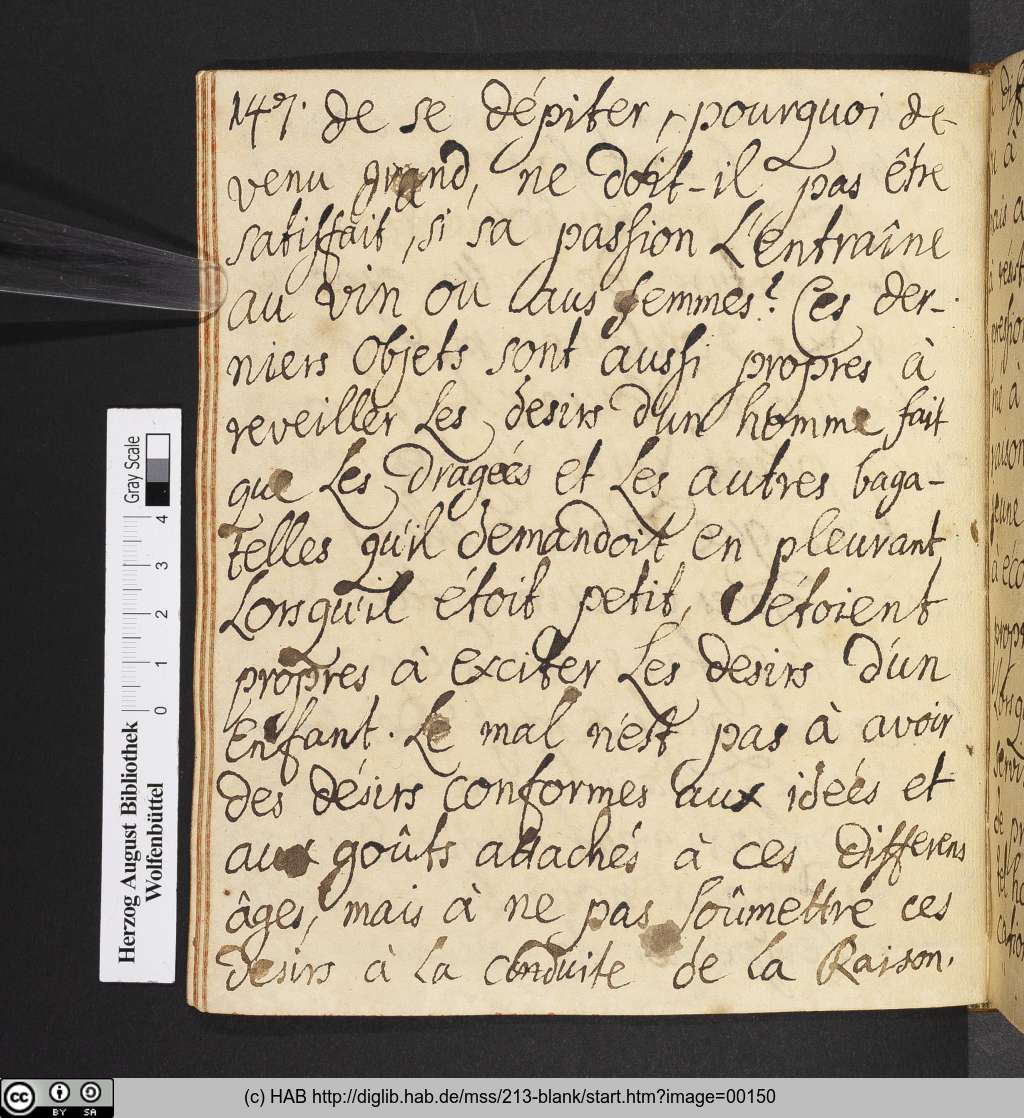 147. de se dépiter, pourquoi de-
venu grand, ne doit-il pas être
satisfait, si sa passion L'entraîne
au vin ou aus femmes? Ces der-
niers objets sont aussi propres à
reveiller Les desirs d'un homme fait
que Les dragées et Les autres baga-
telles qu'il demandoit en pleurant,
Lorsqu'il étoit petit, étoient
propres à exciter Les desirs d'un
Enfant. Le mal n'est pas à avoir
des désirs conformes aux idées et
aux goûts attachés à ces differens
âges, mais à ne pas soûmettre ces
desirs à La conduite de La Raison.
Herzog August Bibliothek
Wolfenbüttel
Gray Scale
0 1 2 3 4
cc BY SA
(c) HAB http://diglib.hab.de/mss/213-blank/start.htm?image=00150